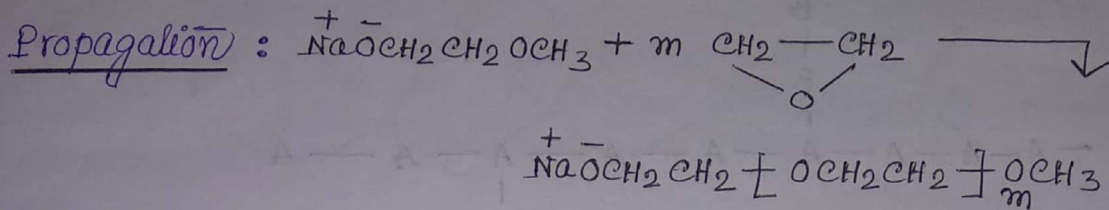 Propagation : Na⁺O⁻CH2CH2OCH3 + m CH2—CH2
O
Na⁺O⁻CH2CH2[OCH2CH2]mOCH3